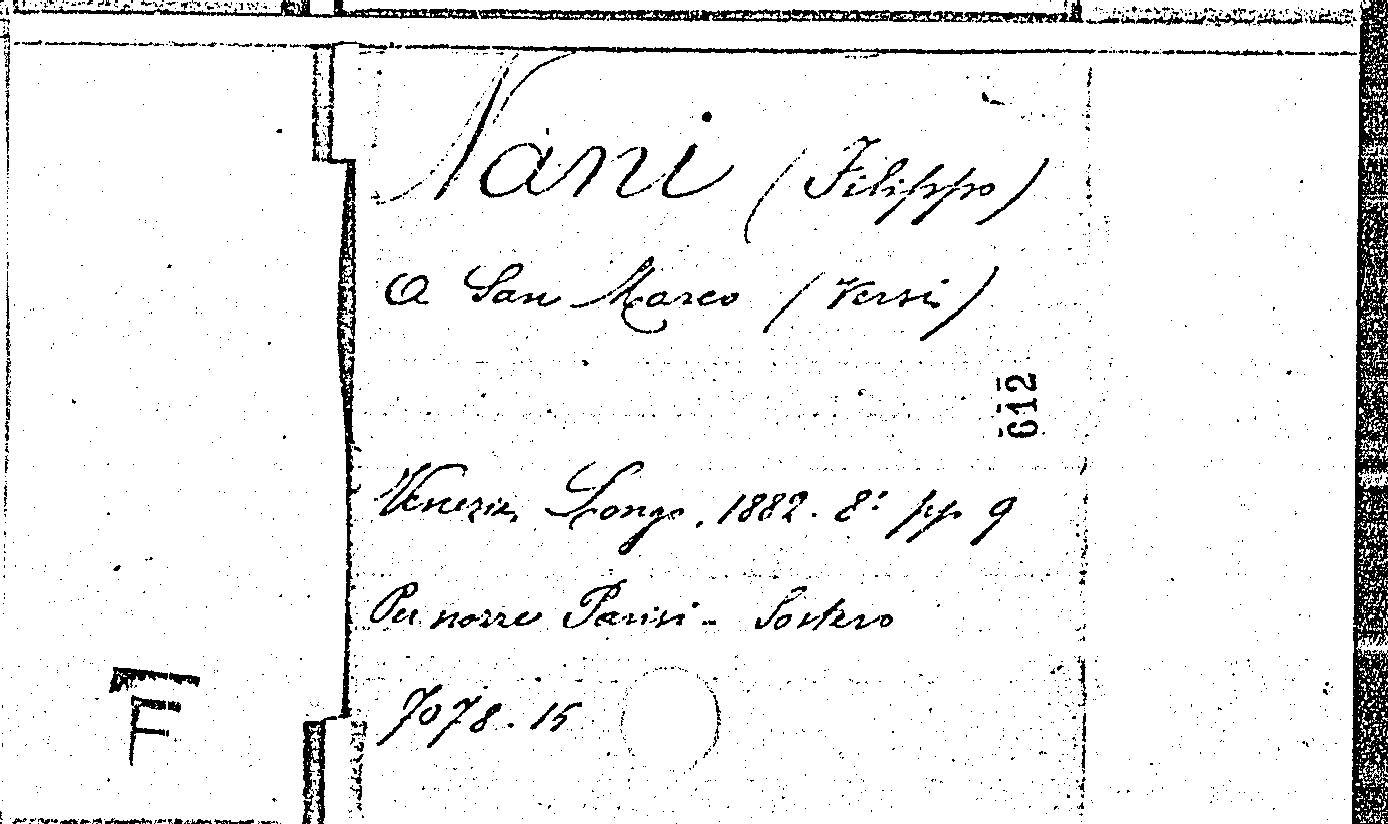 Nani (Filippo)
A San Marco (Versi)
612
Venezia, Longo, 1882. 8° pp 9
Per nozze Parisi - Sostero
7078.15
F